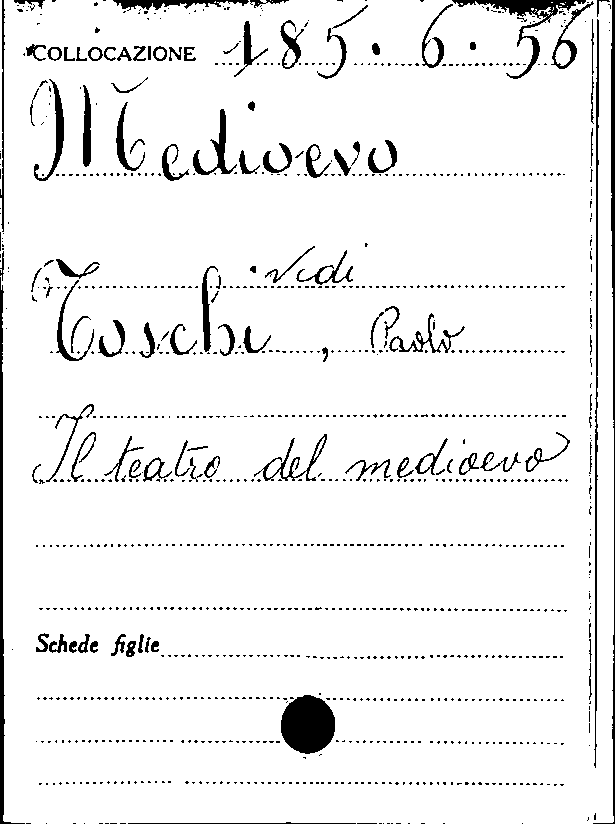 COLLOCAZIONE 185.6.56
Medioevo
Vedi
Toschi, Paolo
Il teatro del medioevo
Schede figlie